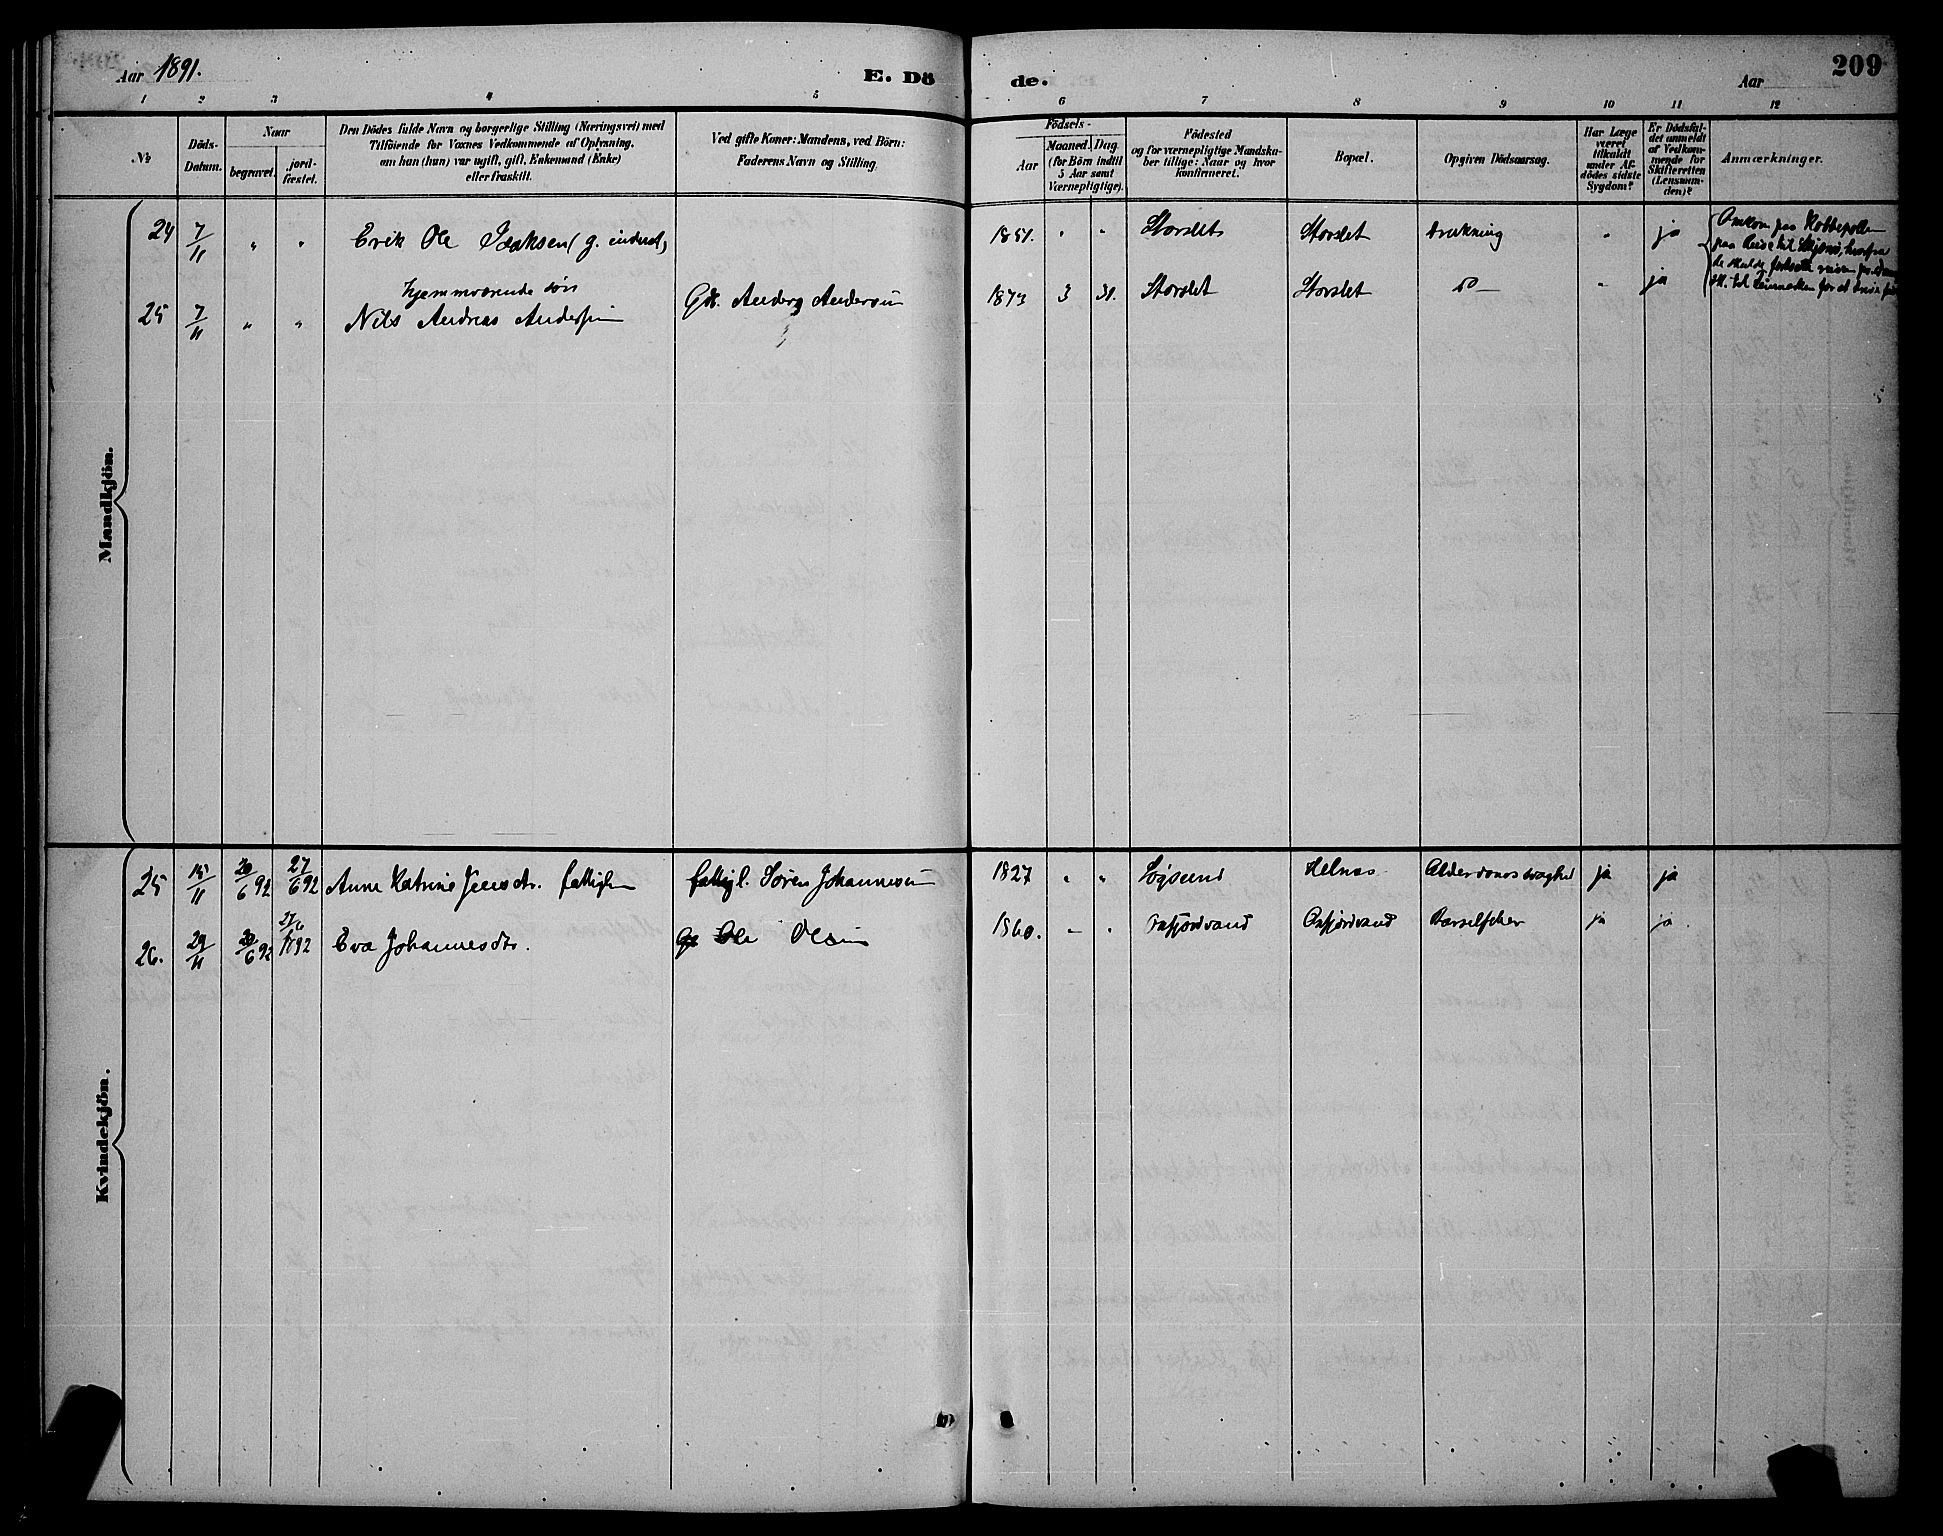 Aar 1891.
E. Dö
de.
Aar
209
1 2 3 4 5 6 7 8 9 10 11 12
No
Döds-
Datum.
Naar
begravet.
jord-
fæstet.
Den Dödes fulde Navn og borgerlige Stilling (Næringsvei) med
Tilföiende for Voxnes Vedkommende af Oplysning,
om han (hun) var ugift, gift, Enkemand (Enke)
eller fraskilt.
Ved gifte Koner: Mandens, ved Börn:
Faderens Navn og Stilling.
Födsels-
Aar
Maaned. Dag.
(for Börn indtil
5 Aar samt
Værnepligtige).
Födested
og for værnepligtige Mandska-
ber tillige: Naar og hvor
konfirmeret.
Bopæl.
Opgiven Dödsaarsag.
Har Læge
været
tilkaldt
under Af-
dödes sidste
Sygdom?
Er Dödsfal-
det anmeldt
af Vedkom-
mende for
Skifteretten
(Lensman-
den)?
Anmærkninger.
Mandkjön.
24 7/11 " " Erik Ole Isaksen (g. inderst) 1851. " " Storslet Storslet Drukning " ja
Omkom paa
paa
de skulde fortsætte reisen
for at
25 7/11 " " hjemmeværende søn
Nils Andreas Andersen Gdr. Anders Andersen 1873 3 31. Storslet Storslet do — " ja
Kvindekjön.
25 15/11 26/6 92 27/6 92 Anne Katrine Jensdtr. fattiglem fattigl. Sören Johannesen 1827 " " Løgsund Helnæs Alderdomssvaghed ja ja
26. 29/11 26/6 92 27/6 1892 Eva Johannesdtr. Ole Olsen 1860. " " Oxfjordvand Oxfjordvand Barselfeber ja ja.